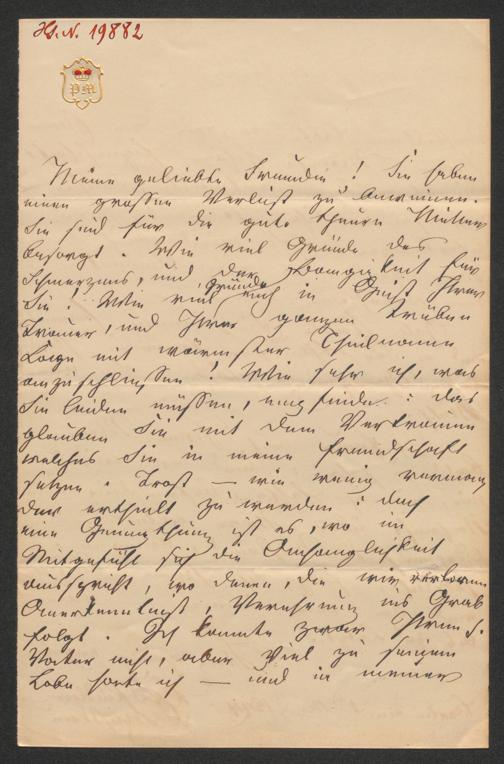 H.I.N. 19882
PM
Meine geliebte Freundin! Sie haben
einen grossen Verlust zu beweinen.
Sie sind für die gute theure Mutter
besorgt. Wie viel Gründe des
Schmerzens, und der Bangigkeit für
Sie! Wie viel Gründe auch in Geist Ihrer
Trauer, und Ihrer ganzen trüben
Lage mit wärmster Theilname
anzuschliessen! Wie sehr ich, was
Sie leiden müssen, empfinde: das
glauben Sie mit dem Vertrauen
welches Sie in meine Freundschaft
setzen. Trost — wie wenig vermag
der ertheilt zu werden: doch
eine Genugthuung ist es, wo im
Mitgefühl sich die Anhänglichkeit
ausspricht, wo denen, die wir verloren
Anerkenntniss, Verehrung ins Grab
folgt. Ich kannte zwar Ihren
Vater nicht, aber viel zu seinem
Lobe hörte ich — und in meiner